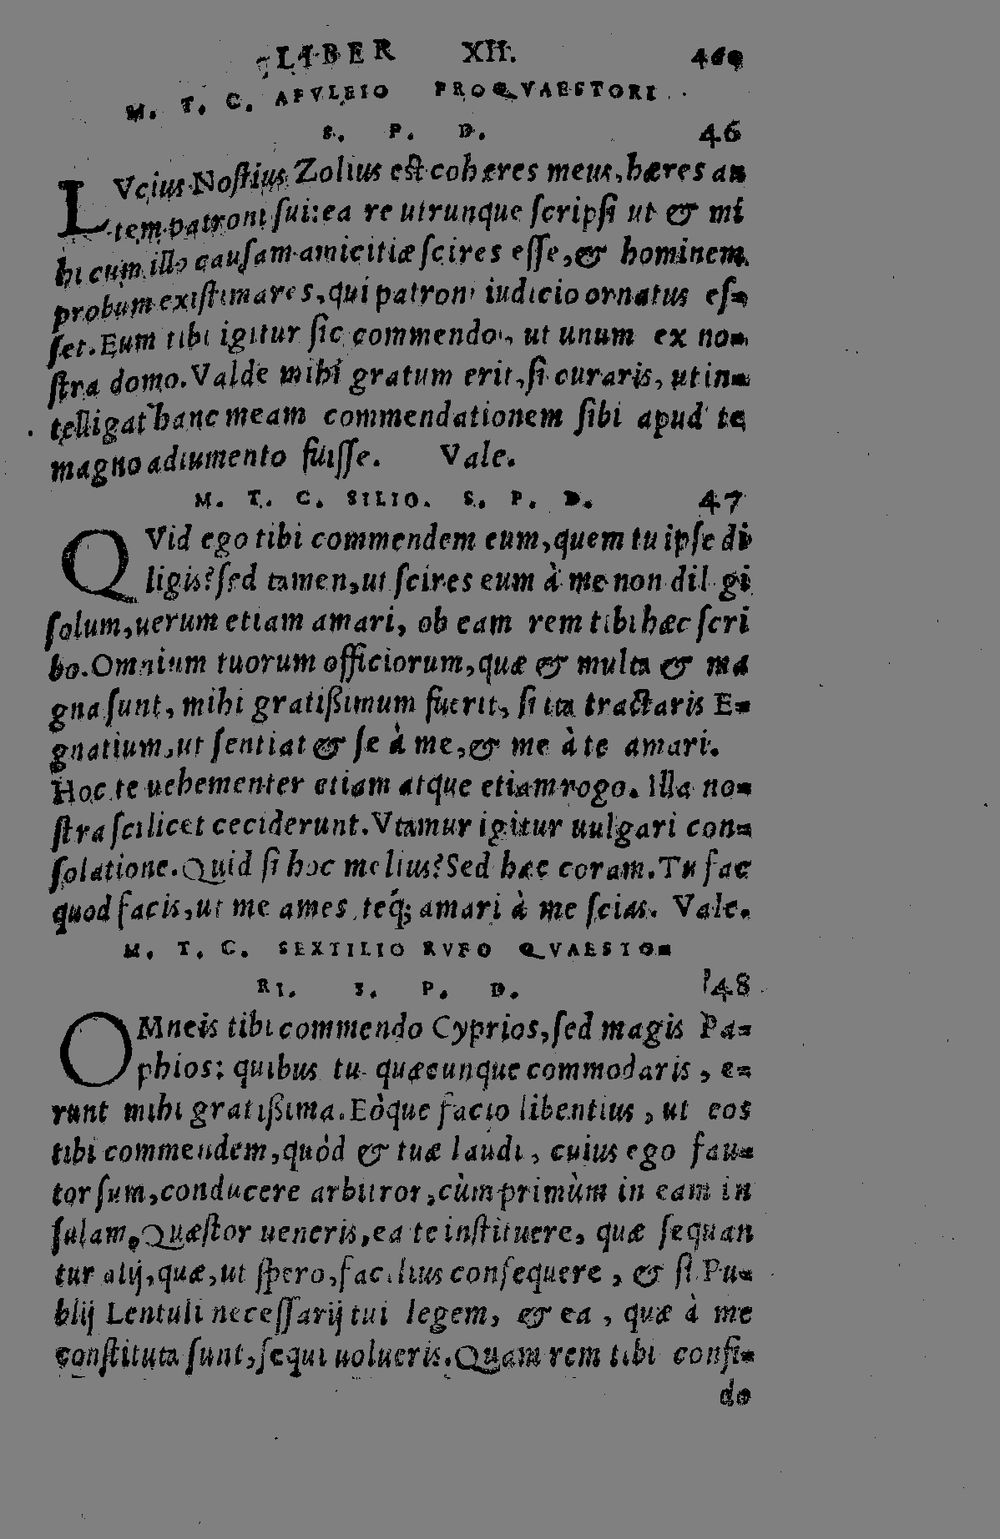 LIBER XII. 469
M. T. C. APVLEIO PROQVAESTORI
S. P. D. 46
LVcius Nostius Zoilus est cohæres meus, hæres an
tem patroni sui: ea re utrunque scripsi ut & mi
hi cum illo causam amicitiæ scires esse, & hominem
probum existimares, qui patroni iudicio ornatus es=
set. Eum tibi igitur sic commendo, ut unum ex no=
stra domo. Valde mihi gratum erit, si curaris, ut in=
telligat hanc meam commendationem sibi apud te
magno adiumento fuisse. Vale.
M. T. C. SILIO. S. P. D. 47
QVid ego tibi commendem eum, quem tu ipse di
ligis? sed tamen, ut scires eum à me non diligi
solum, uerum etiam amari, ob eam rem tibi hæc scri
bo. Omnium tuorum officiorum, quæ & multa & ma
gna sunt, mihi gratißimum fuerit, si ita tractaris E=
gnatium, ut sentiat & se à me, & me à te amari.
Hoc te uehementer etiam atque etiam rogo. Illa no=
stra scilicet ceciderunt. Vtamur igitur uulgari con=
solatione. Quid si hoc melius? Sed hæc coram. Tu fac
quod facis, ut me ames, teq́; amari à me scias. Vale.
M. T. C. SEXTILIO RVFO QVAESTO=
RI. S. P. D. 48
OMneis tibi commendo Cyprios, sed magis Pa=
phios: quibus tu quæcunque commodaris, e=
runt mihi gratißima. Eòque facio libentius, ut eos
tibi commendem, quòd & tuæ laudi, cuius ego fau=
tor sum, conducere arbitror, cùm primùm in eam in
sulam Quæstor ueneris, ea te instituere, quæ sequan
tur alij, quæ, ut spero, facilius consequere, & si Pu=
blij Lentuli necessarij tui legem, & ea, quæ à me
constituta sunt, sequi uolueris. Quam rem tibi confi=
do